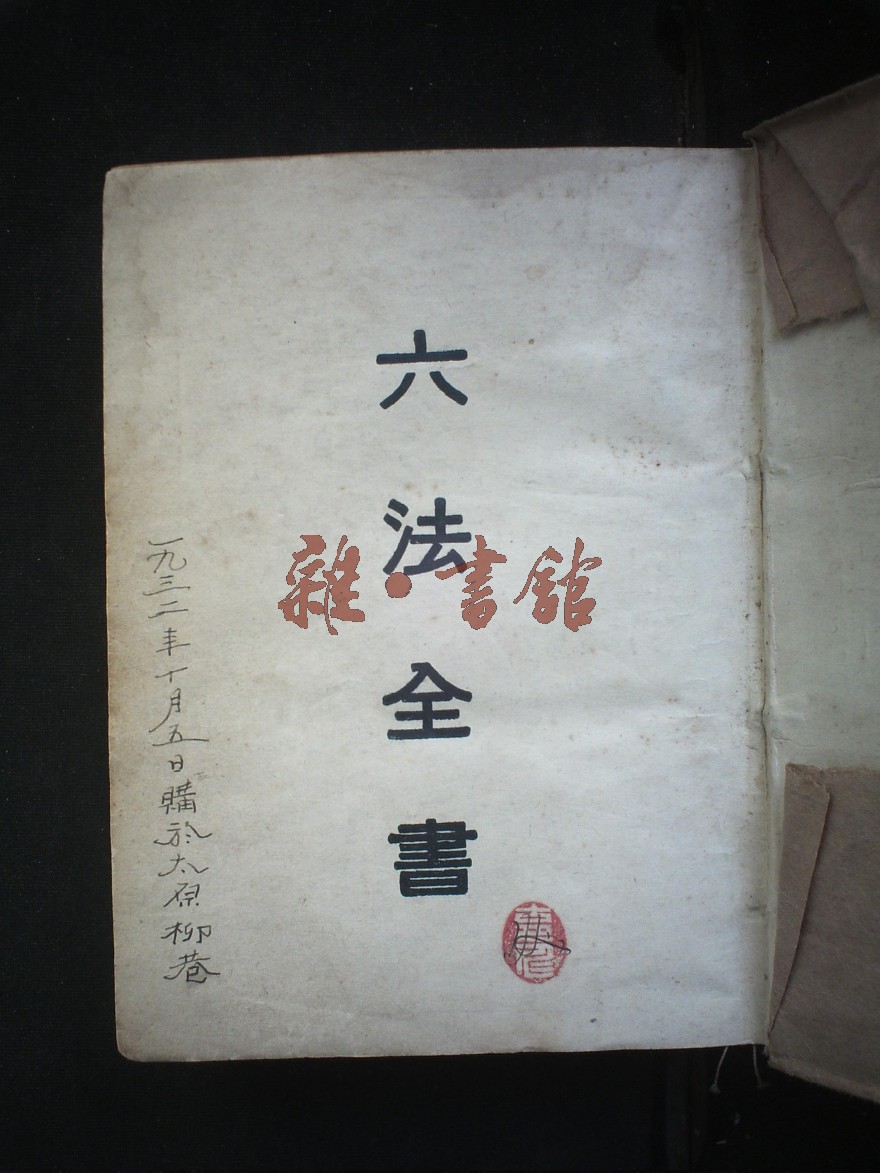 六法全書
一九三二年十月五日購於太原柳巷
雜·書館